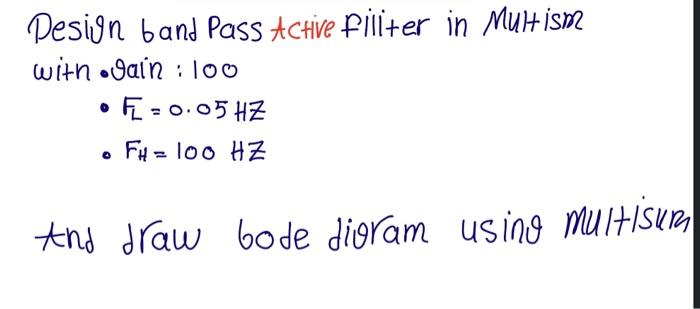 Design band Pass Active filiter in Multism
with • gain : 100
• FL = 0.05 HZ
• FH = 100 HZ
And draw bode digram using multisum